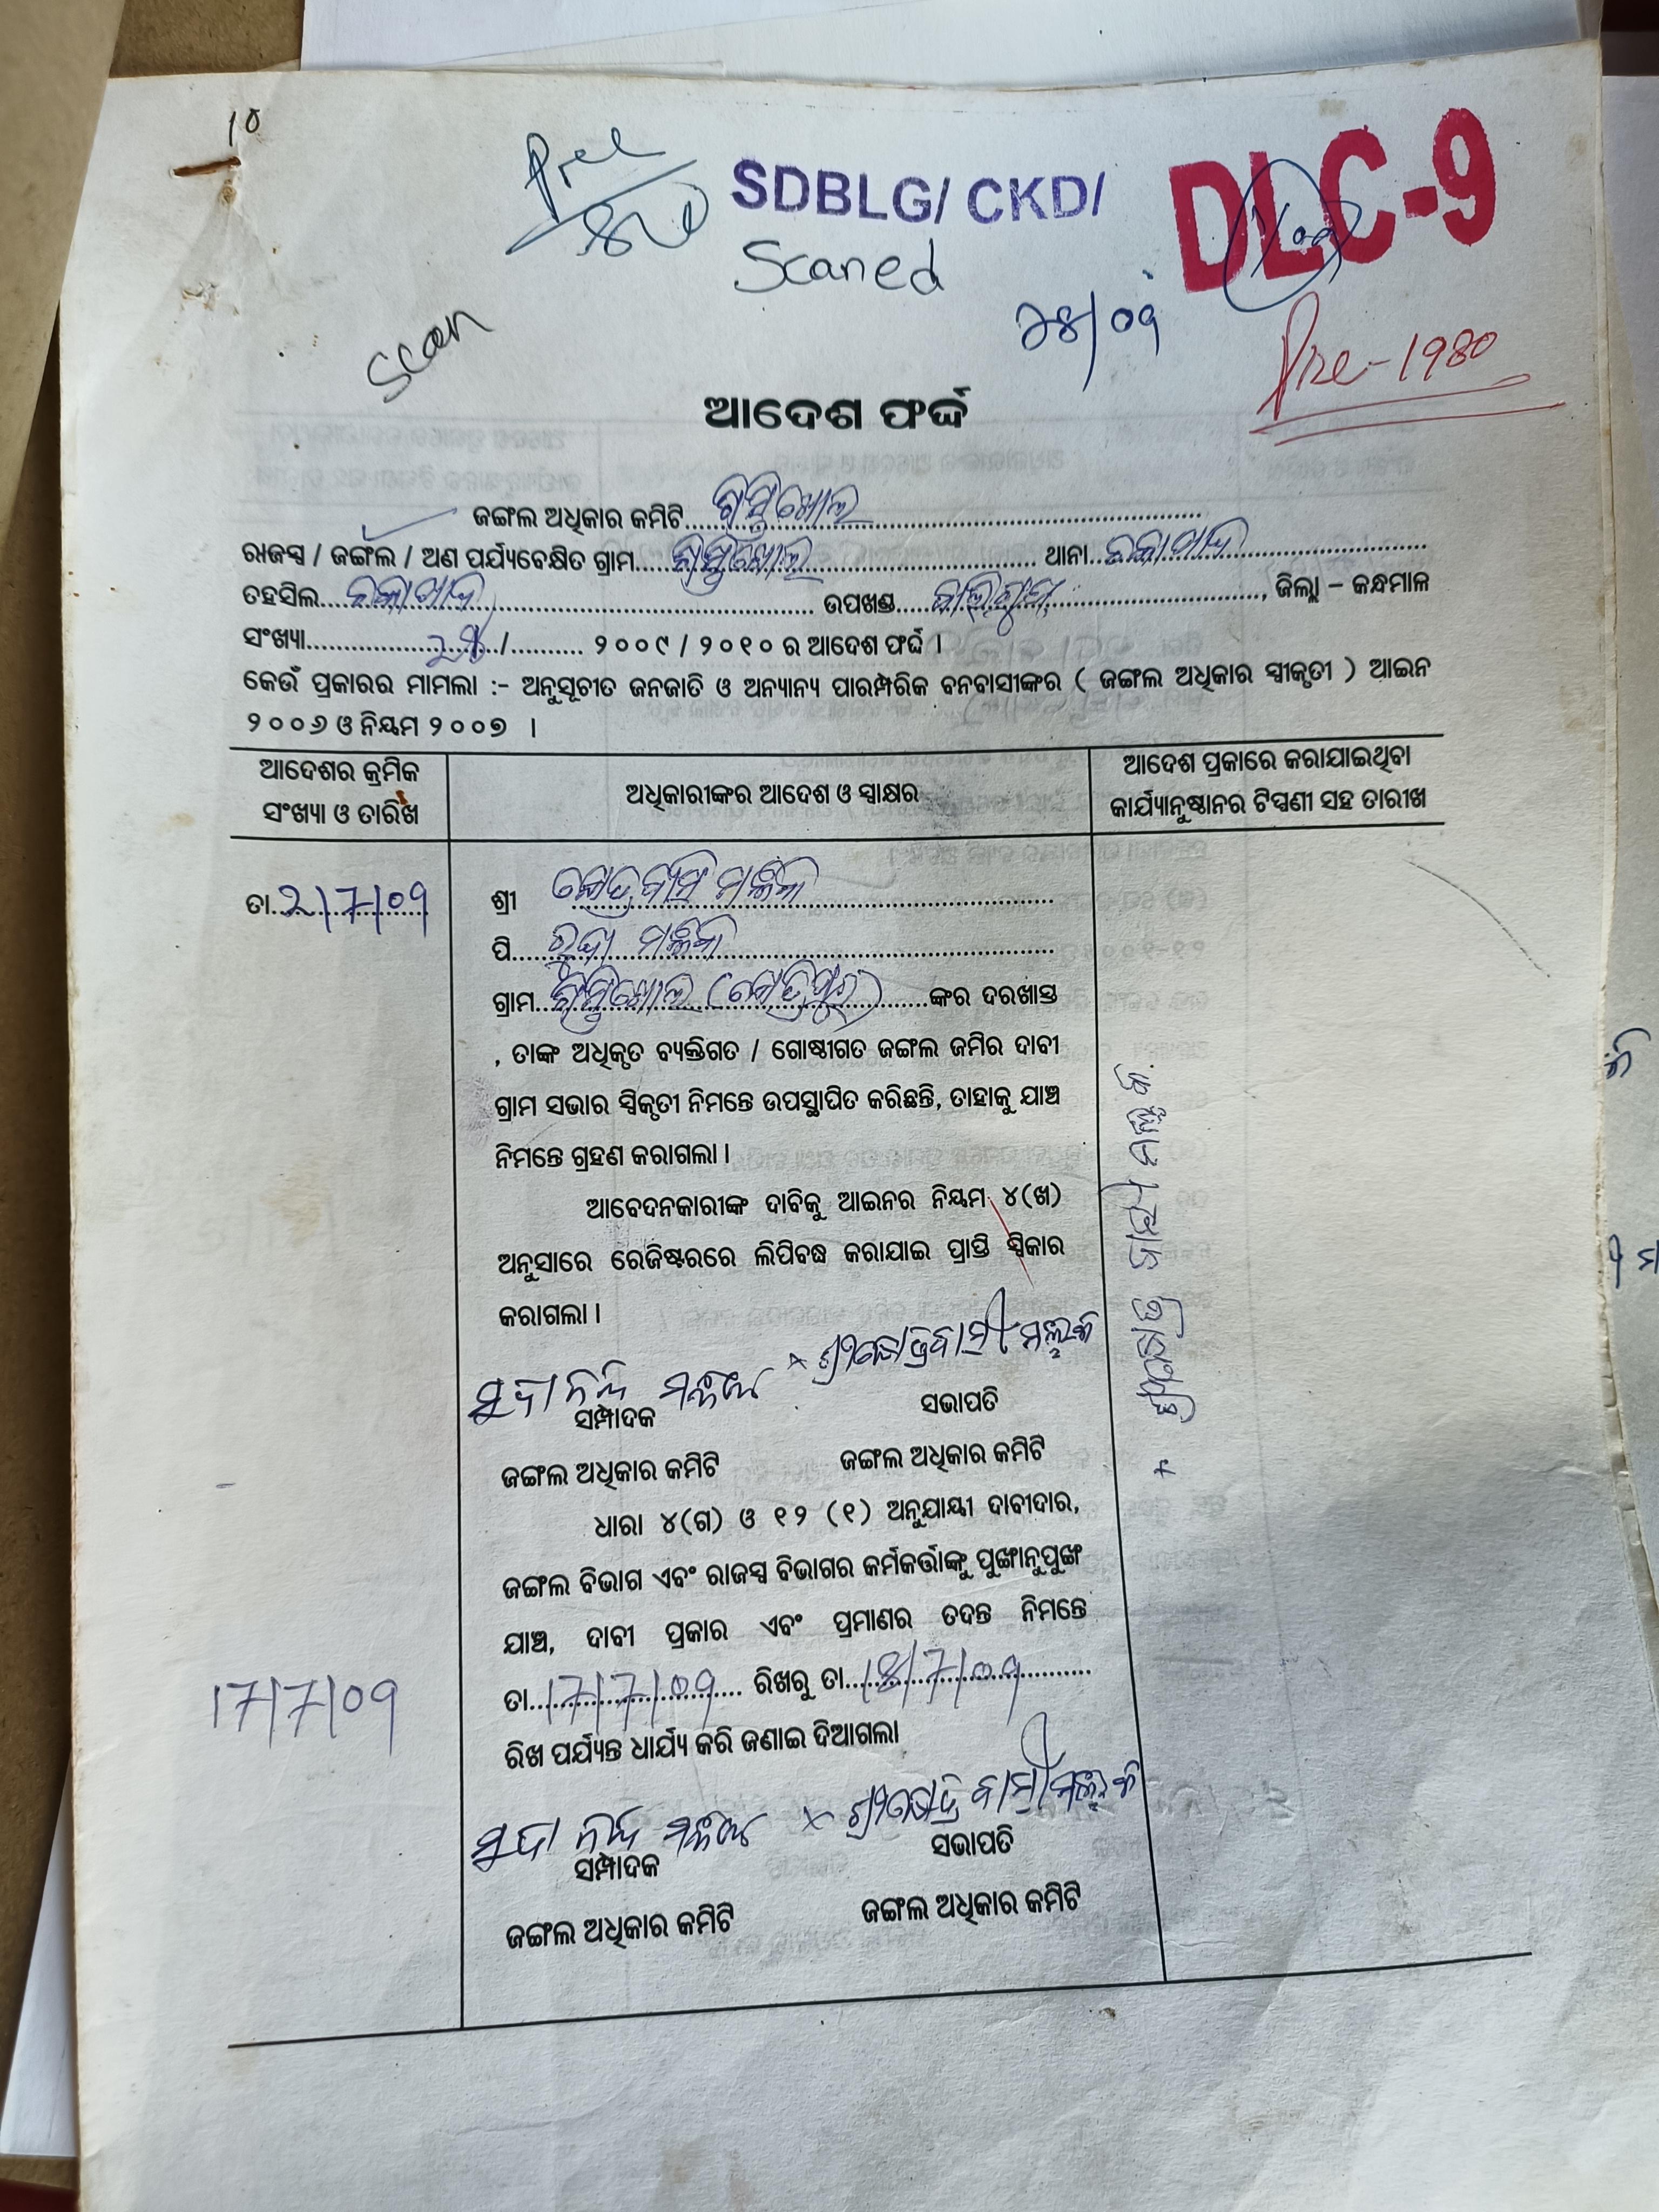 10
SDBLG/ CKD/
DLC-9
Scaned
scan
୨୪/09
Pre-1980
ଆଦେଶ ଫର୍ଦ୍ଦ
ଜଙ୍ଗଲ ଅଧିକାର କମିଟି
ରାଜସ୍ୱ / ଜଙ୍ଗଲ / ଅଣ ପର୍ଯ୍ୟବେକ୍ଷିତ ଗ୍ରାମ ଥାନା
ତହସିଲ ଉପଖଣ୍ଡ , ଜିଲ୍ଲା – କନ୍ଧମାଳ
ସଂଖ୍ୟା / ୨୦୦୯ / ୨୦୧୦ ର ଆଦେଶ ଫର୍ଦ୍ଦ ।
କେଉଁ ପ୍ରକାରର ମାମଲା :- ଅନୁସୂଚୀତ ଜନଜାତି ଓ ଅନ୍ୟାନ୍ୟ ପାରମ୍ପରିକ ବନବାସୀଙ୍କର ( ଜଙ୍ଗଲ ଅଧିକାର ସ୍ୱୀକୃତୀ ) ଆଇନ
୨୦୦୬ ଓ ନିୟମ ୨୦୦୭ ।
ଆଦେଶର କ୍ରମିକ
ସଂଖ୍ୟା ଓ ତାରିଖ
ଅଧିକାରୀଙ୍କର ଆଦେଶ ଓ ସ୍ୱାକ୍ଷର
ଆଦେଶ ପ୍ରକାରେ କରାଯାଇଥିବା
କାର୍ଯ୍ୟାନୁଷ୍ଠାନର ଟିପ୍ପଣୀ ସହ ତାରୀଖ
ତା 2/7/09
ଶ୍ରୀ ମଲ୍ଲିକ
ପି ମଲ୍ଲିକ
ଗ୍ରାମ ଙ୍କର ଦରଖାସ୍ତ
, ତାଙ୍କ ଅଧିକୃତ ବ୍ୟକ୍ତିଗତ / ଗୋଷ୍ଠୀଗତ ଜଙ୍ଗଲ ଜମିର ଦାବୀ
ଗ୍ରାମ ସଭାର ସ୍ୱିକୃତୀ ନିମନ୍ତେ ଉପସ୍ଥାପିତ କରିଛନ୍ତି, ତାହାକୁ ଯାଞ୍ଚ
ନିମନ୍ତେ ଗ୍ରହଣ କରାଗଲା ।
ଆବେଦନକାରୀଙ୍କ ଦାବିକୁ ଆଇନର ନିୟମ ୪(ଖ)
ଅନୁସାରେ ରେଜିଷ୍ଟରରେ ଲିପିବଦ୍ଧ କରାଯାଇ ପ୍ରାପ୍ତି ସ୍ୱିକାର
କରାଗଲା ।
ସମ୍ପାଦକ ସଭାପତି
ଜଙ୍ଗଲ ଅଧିକାର କମିଟି ଜଙ୍ଗଲ ଅଧିକାର କମିଟି
ଧାରା ୪(ଗ) ଓ ୧୨ (୧) ଅନୁଯାୟୀ ଦାବୀଦାର,
ଜଙ୍ଗଲ ବିଭାଗ ଏବଂ ରାଜସ୍ୱ ବିଭାଗର କର୍ମକର୍ତ୍ତାଙ୍କୁ ପୁଙ୍ଖାନୁପୁଙ୍ଖ
ଯାଞ୍ଚ, ଦାବୀ ପ୍ରକାର ଏବଂ ପ୍ରମାଣର ତଦନ୍ତ ନିମନ୍ତେ
17/7/09
ତା 17/7/09 ରିଖରୁ ତା 18/7/09
ରିଖ ପର୍ଯ୍ୟନ୍ତ ଧାର୍ଯ୍ୟ କରି ଜଣାଇ ଦିଆଗଲା
ସମ୍ପାଦକ ସଭାପତି
ଜଙ୍ଗଲ ଅଧିକାର କମିଟି ଜଙ୍ଗଲ ଅଧିକାର କମିଟି